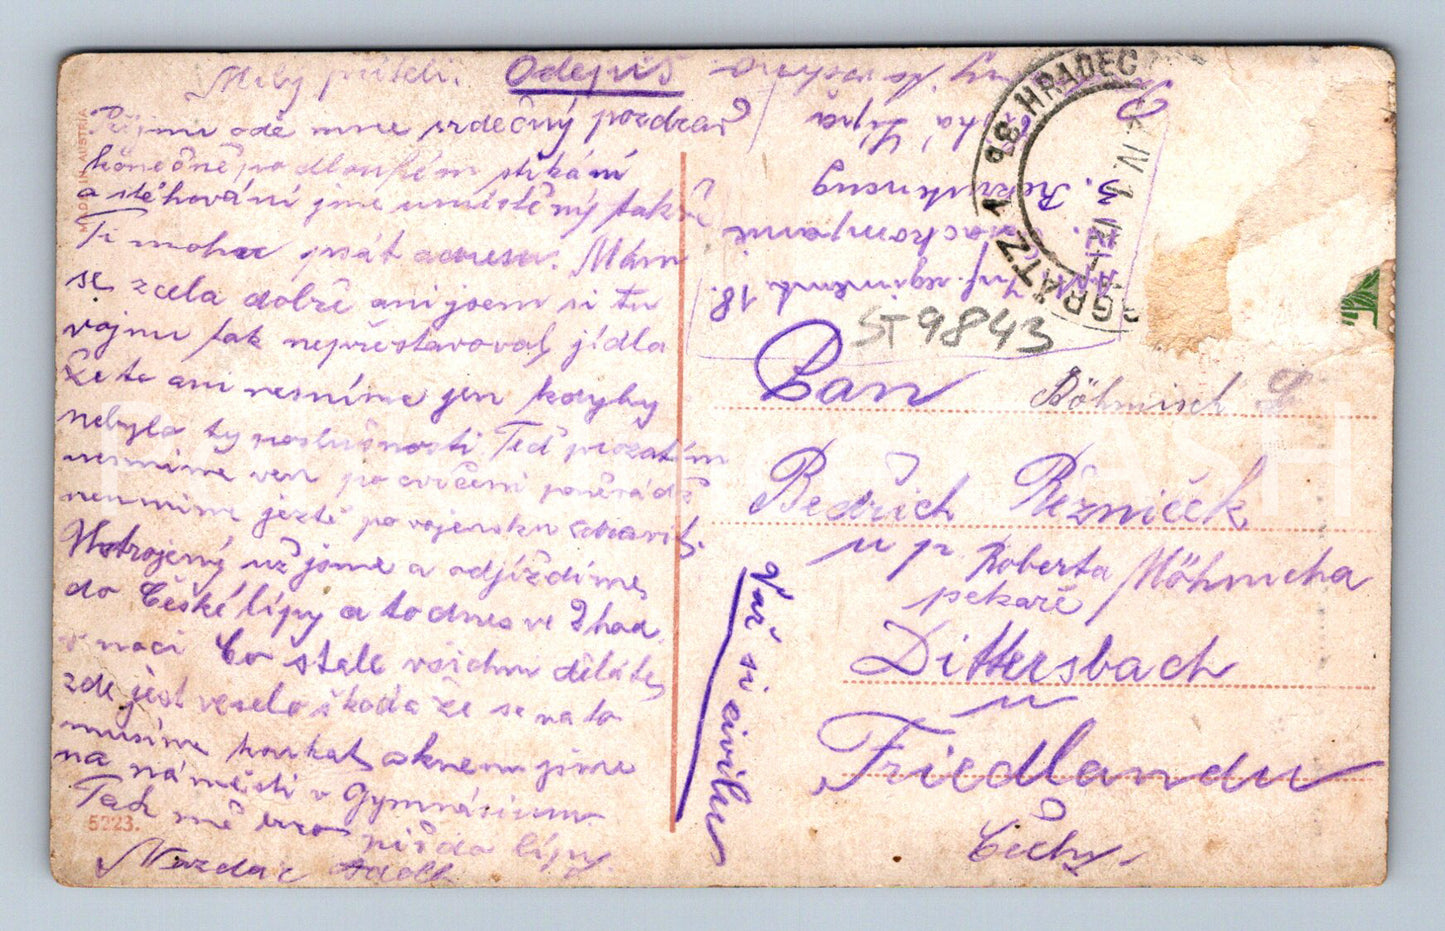 Milý příteli. Odepiš
Přijmi ode mne srdečný pozdrav
konečně po dlouhém stkání
a stěhování jsme umístěný takže
Ti mohu psát adresu. Mám
se zcela dobře ani jsem si tu
vojnu tak nepředstavoval, jídla
že to ani nesníme jen kdyby
nebylo ty poslušnosti. Teď prozatím
nesmíme ven po cvičení poněvadž
neumíme ještě po vojensku zdravit.
Ustrojený už jsme a odjíždíme,
do České lípy a to dnes ve 2 hod.
v noci Co stále všichni děláte,
zde jest veselo škoda že se na to
musíme koukat oknem jsme
na náměstí v Gymnásium
Tak mě
piš do lípy.
Nazdar
MADE IN AUSTRIA
5223.
Česká Lípa
3.
Inf. regiment 18.
HRADEC
GRÄTZ
8
V
IV. 1
ST 9843
Pan
Böhmisch L
Bedřich Řezníček
u p. Roberta Möhnicha
pekaře
Dittersbach
u
Friedlandu
Čechy.
Vař si civilu